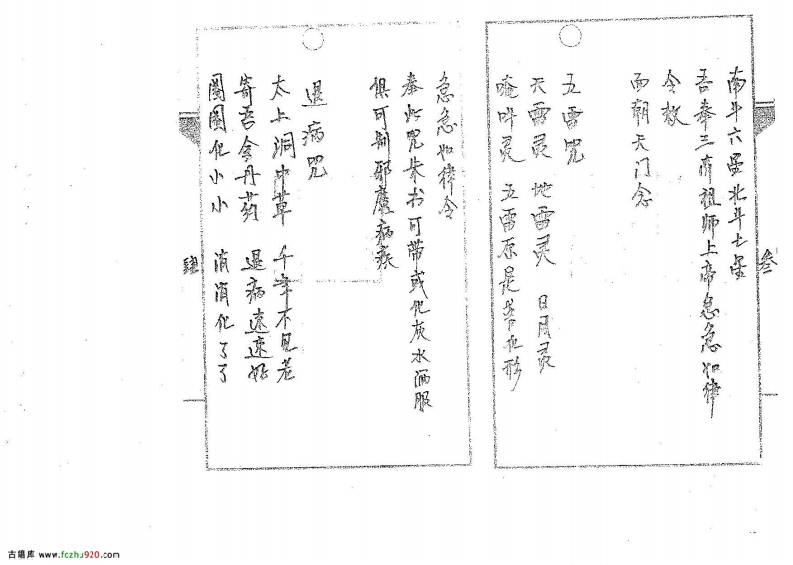 南斗六星北斗七星
吾奉三清祖师上帝急急如律
令敕
面朝天门念
五雷咒
天雷灵 地雷灵 日月灵
唵吽灵 五雷原是 形
叁
急急如律令
奉此咒朱书可带或化灰水洒服
俱可制邪魔病疾
退病咒
太上洞中草 千年不见老
寄吾金丹药 退病速速好
圈圈化小小 消消化了了
肆
古籍库 www.fczhu920.com